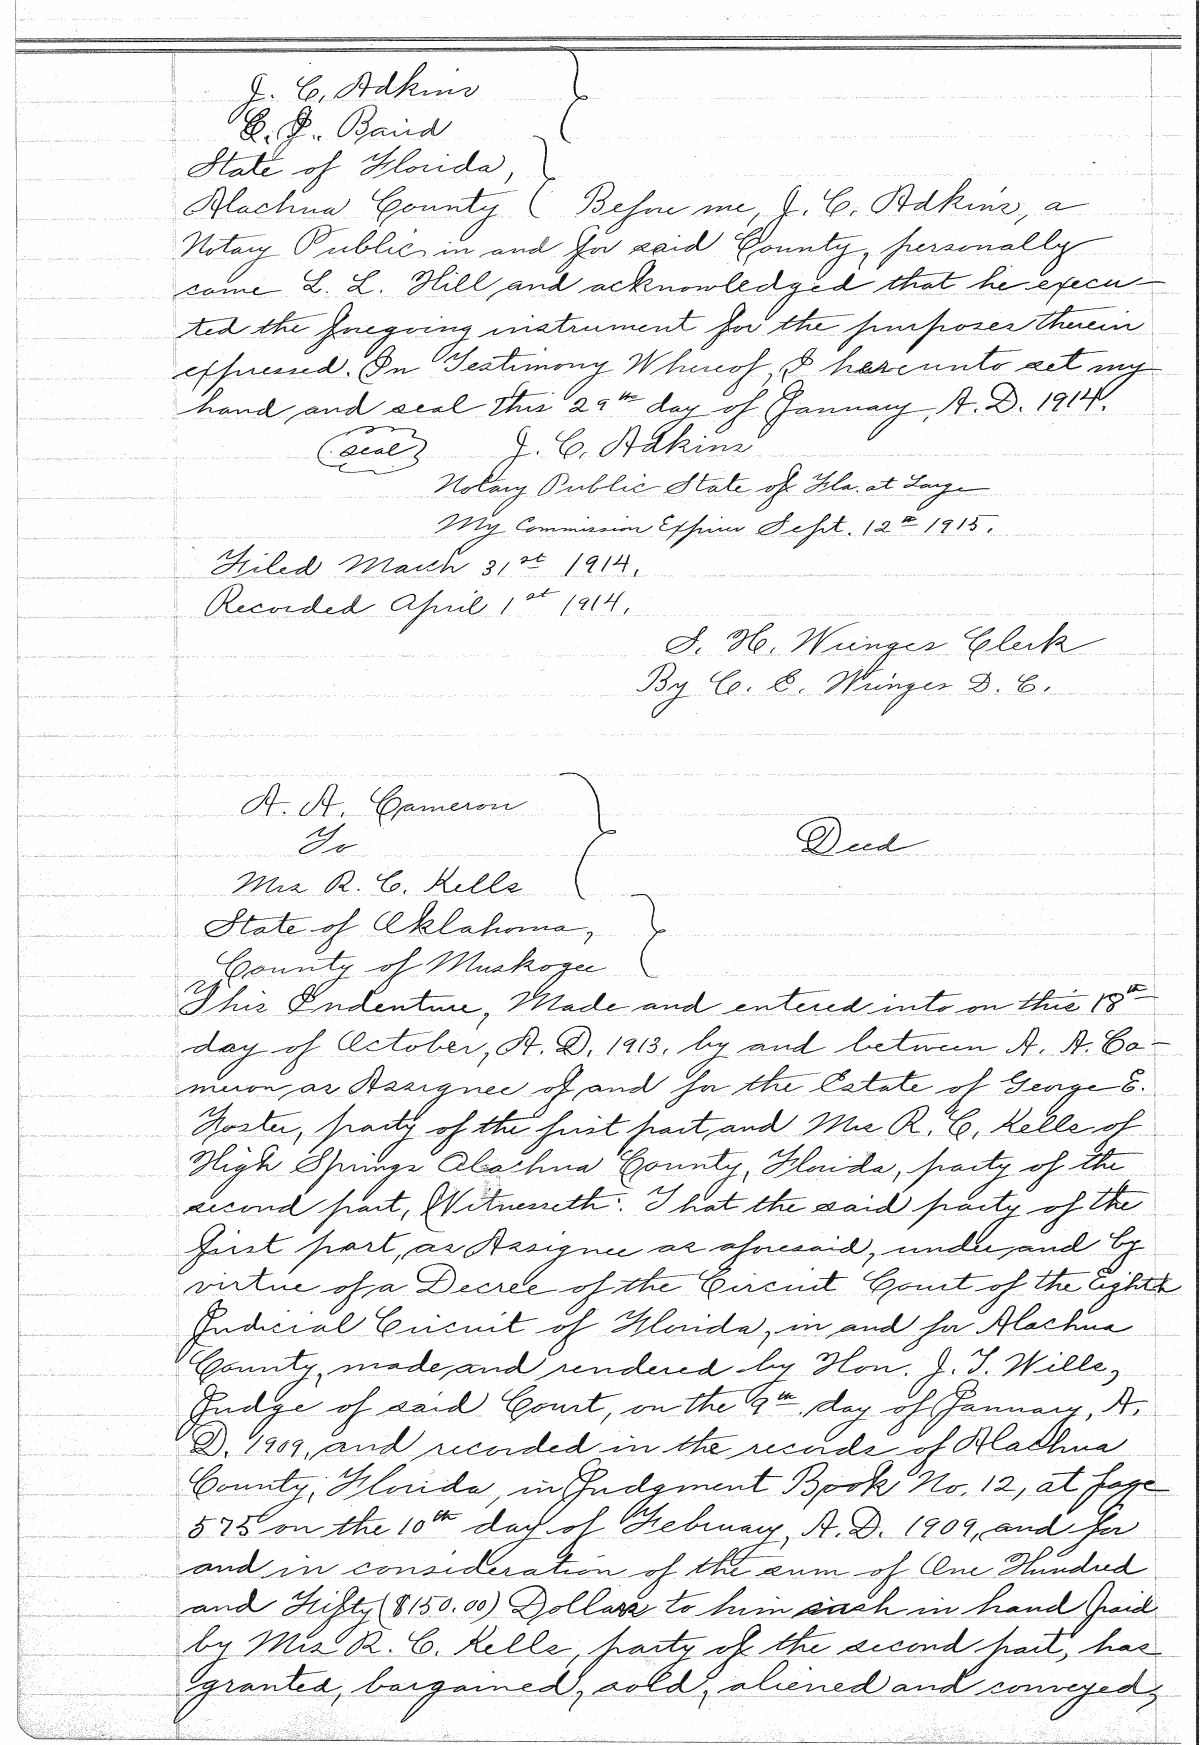 J. C. Adkins
E. J. Baird
State of Florida,
Alachua County ( Before me, J. C. Adkins, a
Notary Public in and for said County, personally
came L. L. Hill and acknowledged that he execu-
ted the foregoing instrument for the purposes therein
expressed. In Testimony Whereof, I hereunto set my
hand and seal this 29th day of January, A. D. 1914.
(seal) J. C. Adkins
Notary Public State of Fla. at Large
My Commission Expires Sept. 12th 1915.
Filed March 31st 1914.
Recorded April 1st 1914.
S. H. Wienges Clerk
By C. E. Wienges D. C.
A. A. Cameron
To Deed
Mrs R. C. Kells
State of Oklahoma,
County of Muskogee
This Indenture, Made and entered into on this 18th
day of October, A. D. 1913. by and between A. A. Ca-
meron as Assignee of and for the Estate of George E.
Foster, party of the first part, and Mrs R. C. Kells of
High Springs Alachua County, Florida, party of the
second part, Witnesseth: That the said party of the
first part, as Assignee as aforesaid, under and by
virtue of a Decree of the Circuit Court of the Eighth
Judicial Circuit of Florida, in and for Alachua
County, made and rendered by Hon. J. T. Wills,
Judge of said Court, on the 9th day of January, A.
D. 1909, and recorded in the records of Alachua
County, Florida, in Judgment Book No. 12, at page
575 on the 10th day of February, A. D. 1909, and for
and in consideration of the sum of One Hundred
and Fifty ($150.00) Dollars to him cash in hand paid
by Mrs R. C. Kells, party of the second part, has
granted, bargained, sold, aliened and conveyed,